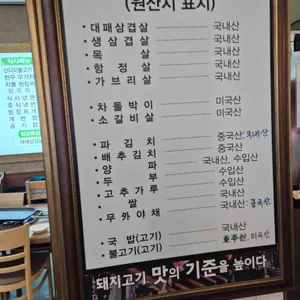 (원산지 표시)
· 대패삼겹살 국내산
· 생삼겹살 국내산
· 목 살 국내산
· 항정살 국내산
· 가브리살 국내산
· 차돌박이 미국산
· 소갈비살 미국산
· 파김치 중국산: 국내산
· 배추김치 중국산
· 양 파 국내산, 수입산
· 두 부 수입산
· 고추가루 수입산
· 쌀 국내산: 중국산
· 무외야채 국내산
· 국 밥(고기) 국내산
· 불고기(고기) 호주산, 미국산
돼지고기 맛의 기준을 높이다